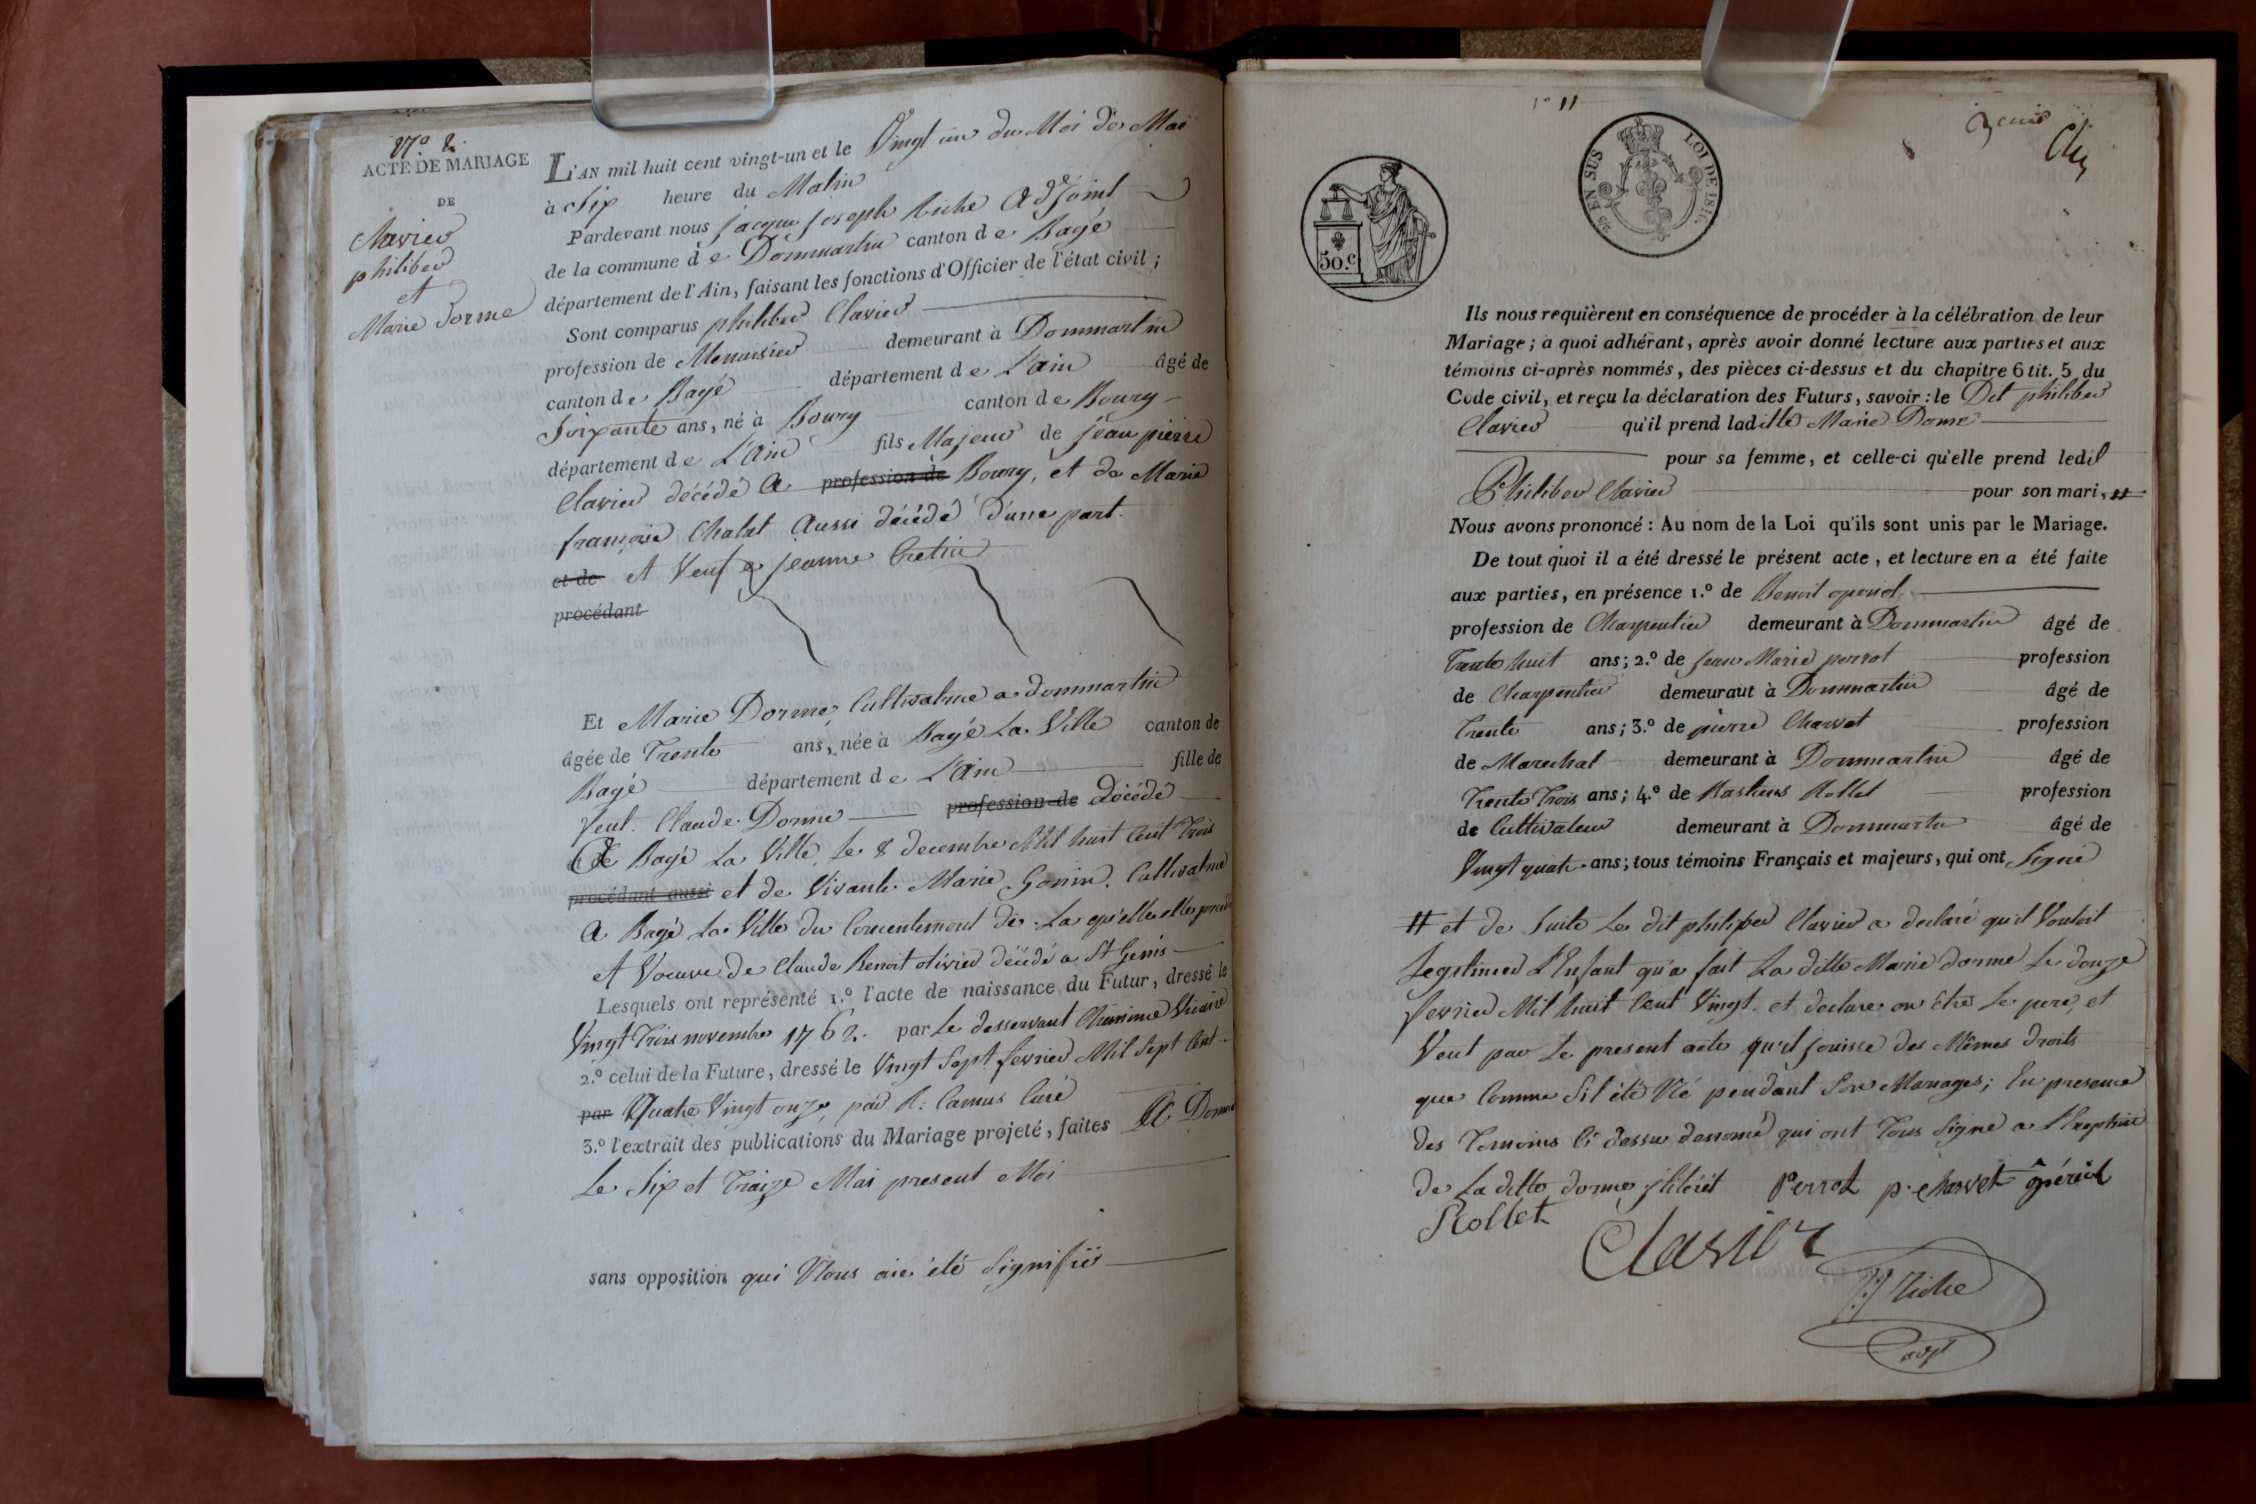 N.° 8.
ACTE DE MARIAGE
DE
Clavier
philiber
et
Marie Dorme
L'AN mil huit cent vingt-un et le Vingt un du Moi de Mai
à Six heure du Matin
Pardevant nous jacque joseph Riche Adjoint
de la commune de Dommartin canton de Bagé
département de l'Ain, faisant les fonctions d'Officier de l'état civil ;
Sont comparus philiber Clavier
profession de Menuisier demeurant à Dommartin
canton de Bagé département de L'ain âgé de
Soixante ans, né à Bourg canton de Bourg
département de L'Ain fils Majeur de jean pierre
Clavier décédé A profession de Bourg, et de Marie
françoise Chalat Aussi décédé d'une part.
et de et Veuf de jeanne Cretin
procédant
Et Marie Dorme, Cultivatrice a dommartin
âgée de Trente ans, née à Bagé La Ville canton de
Bagé département de L'Ain fille de
feut Claude Dorme profession de Décédé
De Bagé La Ville, Le 8 decembre Mil huit Cent Trois
procédant aussi et de Vivante Marie Gonin, Cultivatrice
A Bagé La Ville du Consentement de La qu'elle elle procede
et Voeuve de Claude Benoit olivier décédé a St Genis
Lesquels ont représenté 1.° l'acte de naissance du Futur, dressé le
Vingt Trois novembre 1762. par Le desservant Vicaire
2.° celui de la Future, dressé le Vingt Sept fevrier Mil Sept Cent
par Quatre Vingt onze, par R: Camus Curé
3.° l'extrait des publications du Mariage projeté, faites A Domm
Le Six et Traize Mai present Moi
sans opposition qui Nous aie été Signifiés
11
50.c
EN SUS
LOI DE 181
Ils nous requièrent en conséquence de procéder à la célébration de leur
Mariage ; à quoi adhérant, après avoir donné lecture aux parties et aux
témoins ci-après nommés, des pièces ci-dessus et du chapitre 6 tit. 5 du
Code civil, et reçu la déclaration des Futurs, savoir : le Dit philiber
Clavier qu'il prend laditte Marie Dorme
pour sa femme, et celle-ci qu'elle prend ledit
Philiber Clavier pour son mari, #
Nous avons prononcé : Au nom de la Loi qu'ils sont unis par le Mariage.
De tout quoi il a été dressé le présent acte, et lecture en a été faite
aux parties, en présence 1.° de Benoit operiol
profession de Charpentier demeurant à Dommartin âgé de
Trente huit ans ; 2.° de jean Marie perrot profession
de Charpentier demeurant à Dommartin âgé de
Trente ans ; 3.° de pierre Charvet profession
de Marechal demeurant à Dommartin âgé de
Trente Trois ans ; 4.° de Rollet profession
de Cultivateur demeurant à Dommartin âgé de
Vingt quatre ans ; tous témoins Français et majeurs, qui ont Signé
# et de Suite Le dit philiber Clavier a declaré qu'il Vouloit
Legitimer L'Enfant qu'a fait La ditte Marie dorme Le douze
fevrier Mil huit Cent Vingt. et declare en être Le pere, et
Veut par Le present acte qu'il jouisse des Mêmes droits
que Comme Sil été Né pendant Son Mariages ; En presence
des Temoins Ci dessu denomé qui ont Tous Signé a L'Exeptiue
de La ditte dorme jlliterét Perrot p. charvet opériol
Rollet
Clavier
JJ Riche
adjt